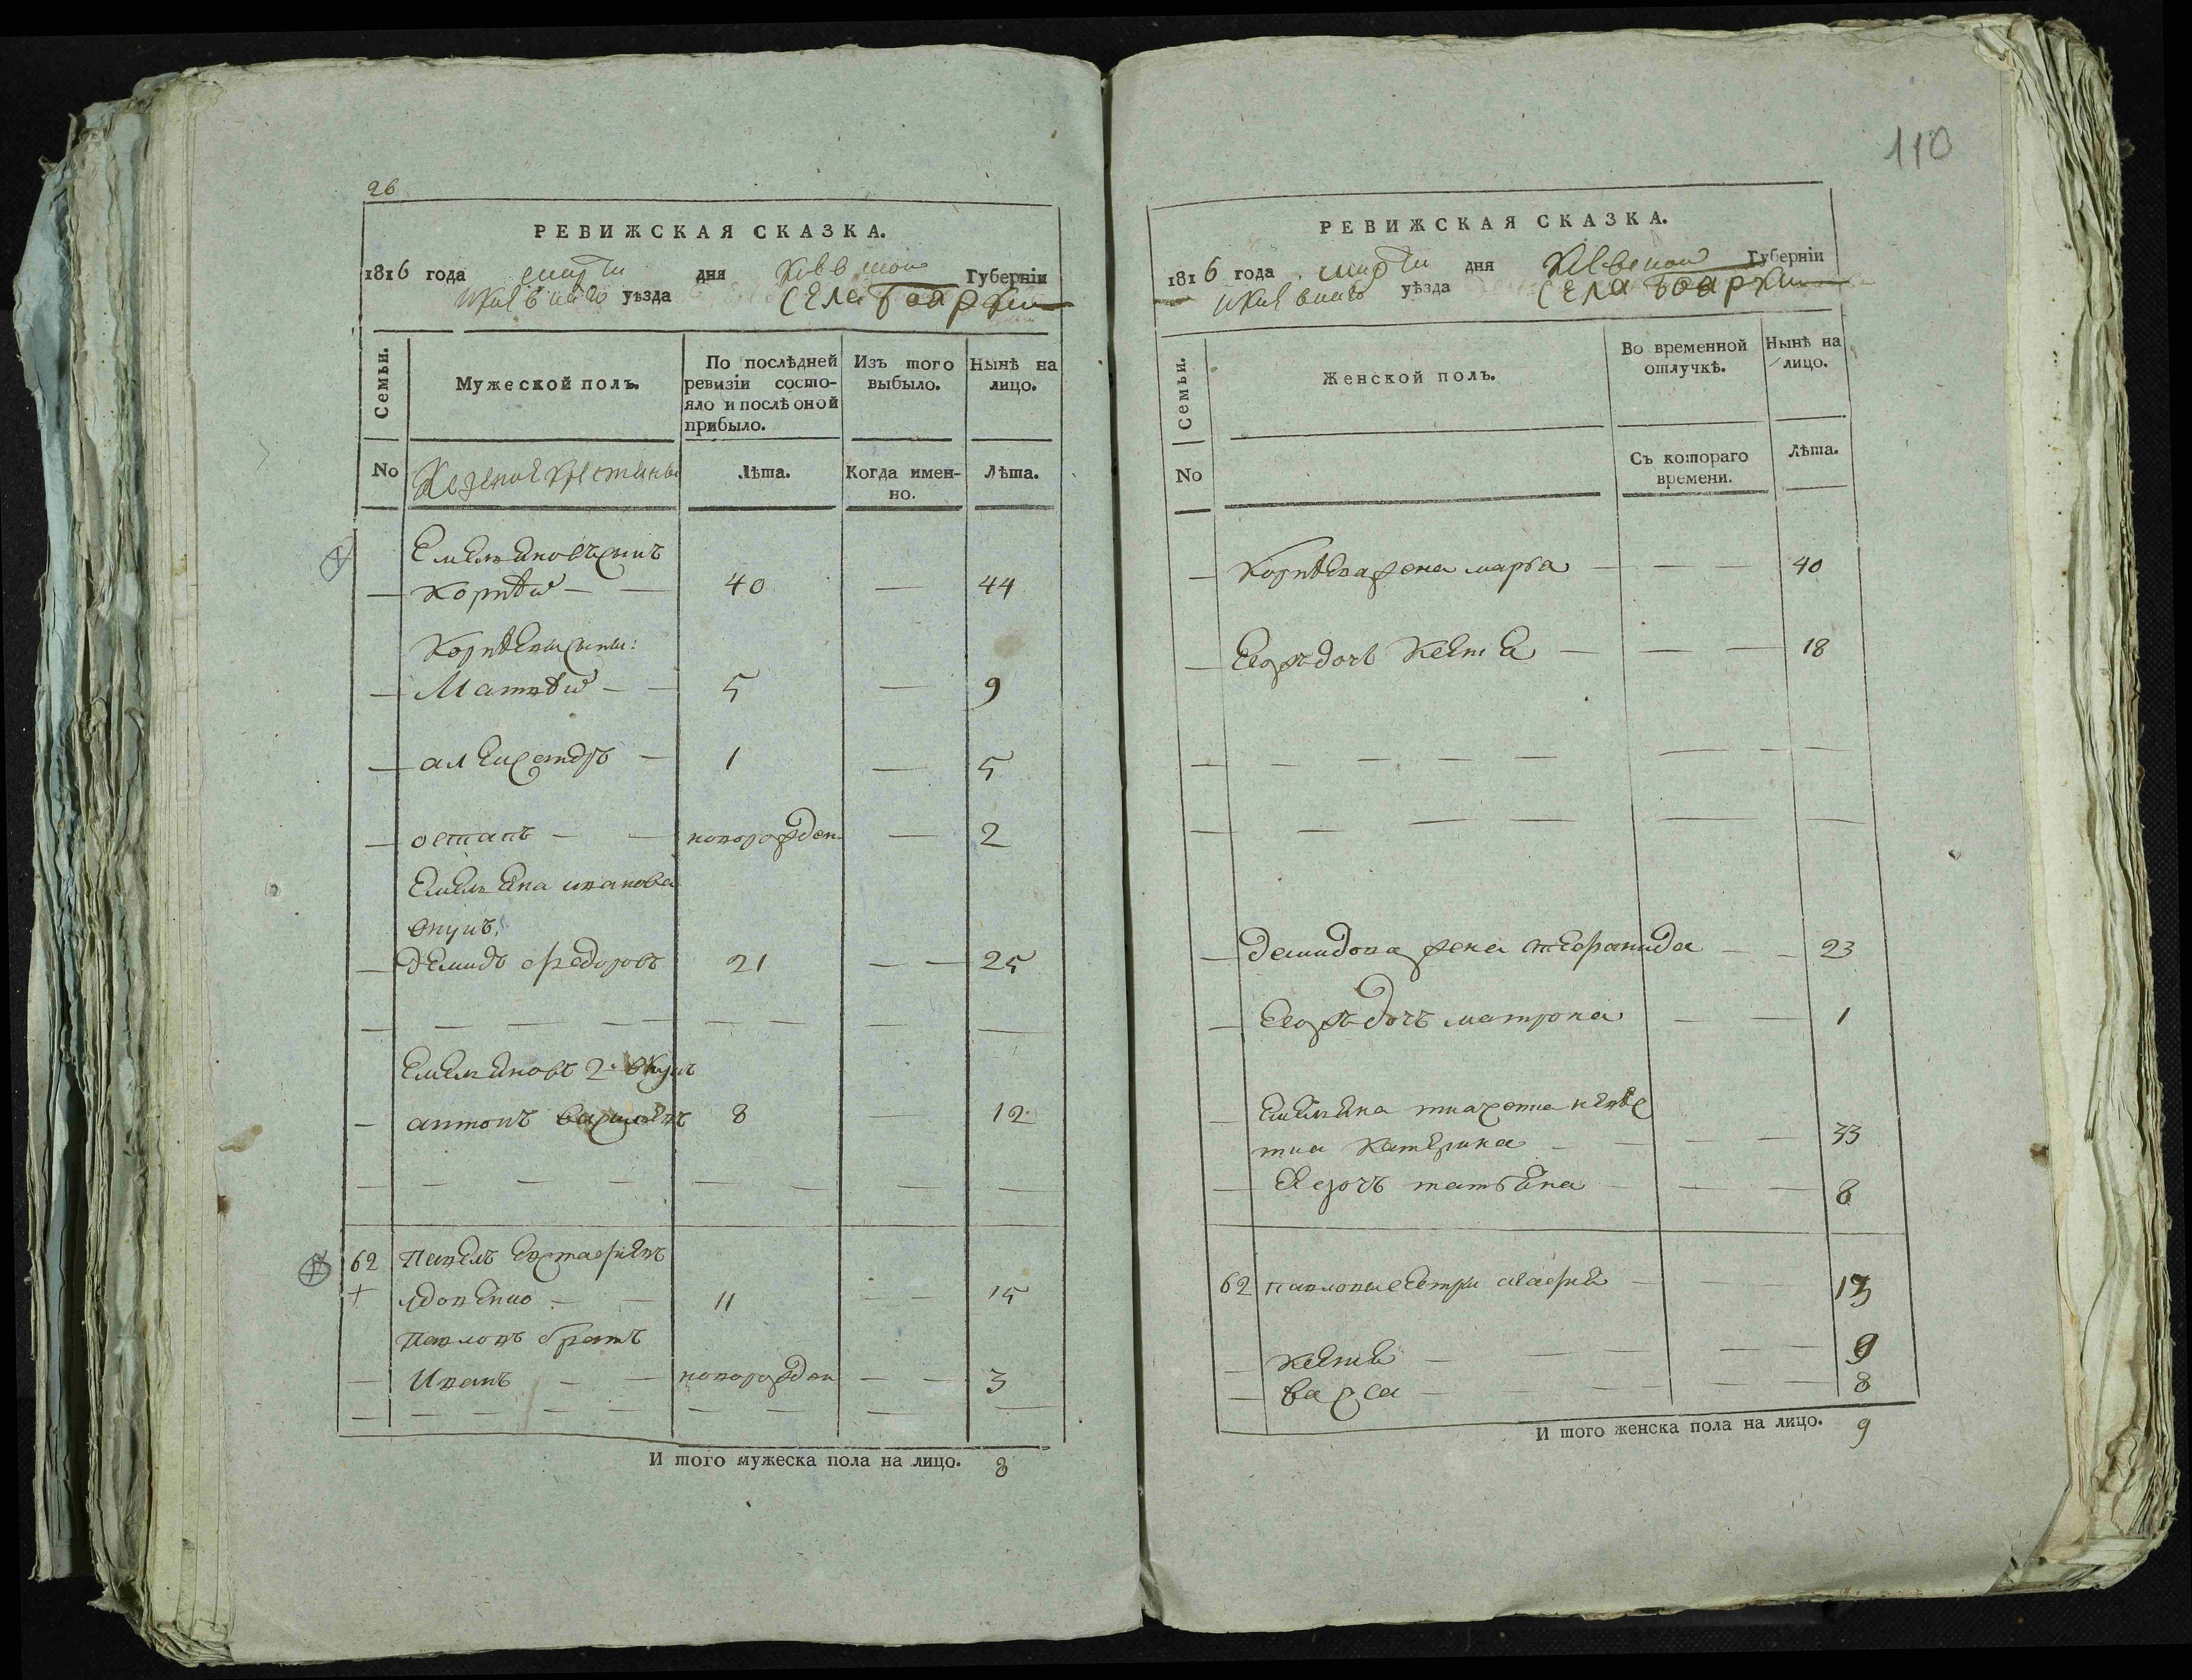 26
РЕВИЖСКАЯ СКАЗКА.
1816 года марта дня Киевской Губерніи
уѣзда села Боярки
Семьи.
Мужеской полъ.
По послѣдней
ревизіи состо-
яло и послѣ оной
прибыло.
Изъ того
выбыло.
Нынѣ на
лицо.
No
Казенные крестьяне
Лѣта.
Когда имен-
но.
Лѣта.
Емельяновъ сынъ
— Корнѣй — — 40 — 44
Корнѣевы сыны:
— Матвѣй — — 5 — 9
— александръ — 1 — 5
— остапъ — — новорожден — 2
Емельяна иванова
внукъ:
— Демидъ федоровъ 21 — — 25
Емельяновъ 2й внукъ
— антонъ 8 — 12
62 Павелъ Евстафіевъ
+ — — 11 — — 15
Павловъ братъ
— Иванъ — — новорожден — — 3
И того мужеска пола на лицо. 8
110
РЕВИЖСКАЯ СКАЗКА.
1816 года марта дня Киевской Губерніи
уѣзда села Боярки
Семьи.
Женской полъ.
Во временной
отлучкѣ.
Нынѣ на
лицо.
No
Съ котораго
времени.
Лѣта.
— Корнѣева жена марѳа — — — 40
— Егожъ дочь Настя — — — 18
— Демидова жена — — 23
— Егожъ дочь матрона — — 1
— Емельяна невѣс
тка Катерина — — — — 33
— Ея дочь татьяна — — — 8
62 Павловы сестры — — — 13
— Настя — — — — — 9
— Васса — — — — — 8
И того женска пола на лицо. 9